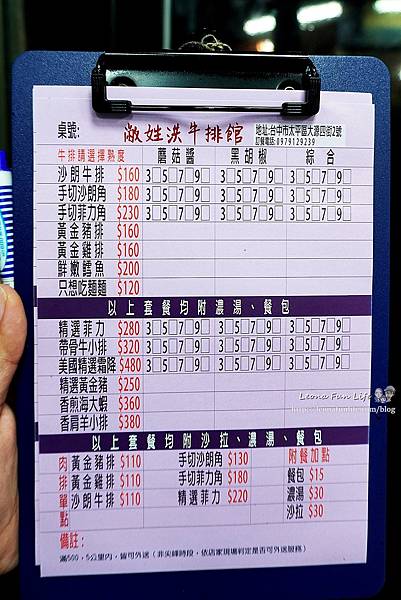 桌號:
敝姓洪牛排館
地址:台中市太平區大源四街2號
訂餐電話:0979129239
牛排請選擇熟度 蘑菇醬 黑胡椒 綜合
沙朗牛排 $160 3□5□7□9□ 3□5□7□9□ 3□5□7□9□
手切沙朗角 $180 3□5□7□9□ 3□5□7□9□ 3□5□7□9□
手切菲力角 $230 3□5□7□9□ 3□5□7□9□ 3□5□7□9□
黃金豬排 $160
黃金雞排 $160
鮮嫩鱈魚 $200
只想吃麵麵 $120
以上套餐均附濃湯、餐包
精選菲力 $280 3□5□7□9□ 3□5□7□9□ 3□5□7□9□
帶骨牛小排 $320 3□5□7□9□ 3□5□7□9□ 3□5□7□9□
美國精選霜降 $480 3□5□7□9□ 3□5□7□9□ 3□5□7□9□
精選黃金豬 $250
香煎海大蝦 $360
香肩羊小排 $380
以上套餐均附沙拉、濃湯、餐包
肉排單點
黃金豬排 $110 手切沙朗角 $130 附餐加點
黃金雞排 $110 手切菲力角 $180 餐包 $15
沙朗牛排 $110 精選菲力 $220 濃湯 $30
沙拉 $30
備註:
滿500,5公里內,皆可外送(非尖峰時段,依店家現場判定是否可外送服務)
Leona Fun Life